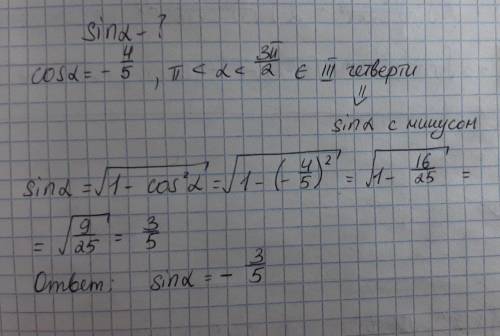 sinα - ?
cosα = - 4/5 , π < α < 3π/2 ∈ III четверти
⇓
sinα с минусом
sinα = √(1 - cos²α) = √(1 - (- 4/5)²) = √(1 - 16/25) =
= √(9/25) = 3/5
Ответ: sinα = - 3/5